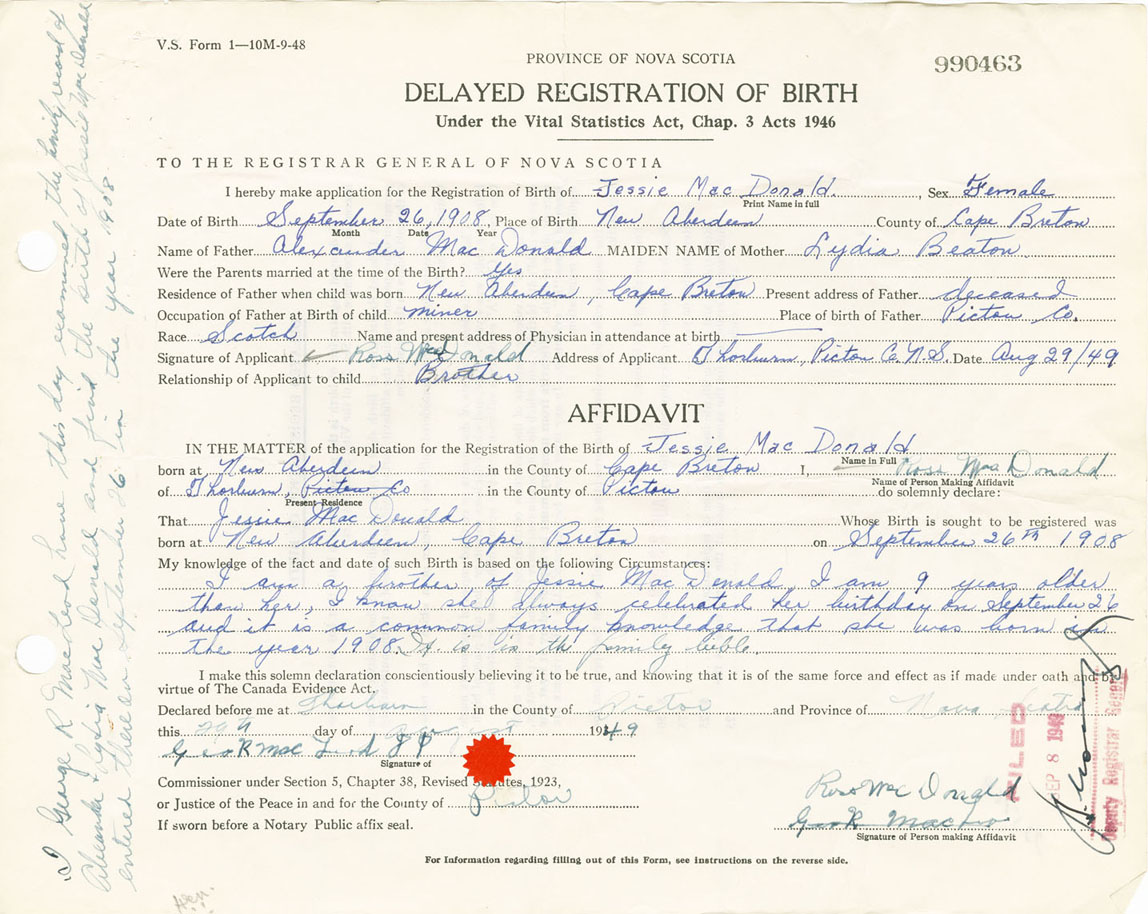 V.S. Form 1—10M-9-48
PROVINCE OF NOVA SCOTIA
990463
DELAYED REGISTRATION OF BIRTH
Under the Vital Statistics Act, Chap. 3 Acts 1946
TO THE REGISTRAR GENERAL OF NOVA SCOTIA
I hereby make application for the Registration of Birth of Jessie Mac Donald. Sex Female
Print Name in full
Date of Birth September 26, 1908, Place of Birth New Aberdeen County of Cape Breton
Month Date Year
Name of Father Alexander Mac Donald MAIDEN NAME of Mother Lydia Beaton
Were the Parents married at the time of the Birth? Yes
Residence of Father when child was born New Aberdeen, Cape Breton Present address of Father deceased
Occupation of Father at Birth of child miner Place of birth of Father Pictou Co.
Race Scotch Name and present address of Physician in attendance at birth
Signature of Applicant Ross MacDonald Address of Applicant Thorburn, Pictou C. N.S. Date Aug 29/49
Relationship of Applicant to child Brother
AFFIDAVIT
IN THE MATTER of the application for the Registration of the Birth of Jessie Mac Donald
Name in Full
born at New Aberdeen in the County of Cape Breton I, Ross MacDonald
Name of Person Making Affidavit
of Thorburn, Pictou Co in the County of Pictou do solemnly declare:
Present Residence
That Jessie Mac Donald Whose Birth is sought to be registered was
born at New Aberdeen, Cape Breton on September 26th 1908
My knowledge of the fact and date of such Birth is based on the following Circumstances:
I am a brother of Jessie MacDonald, I am 9 years older
than her, I know she always celebrated her birthday on September 26
and it is a common family knowledge that she was born in
the year 1908. It is in the family bible.
I make this solemn declaration conscientiously believing it to be true, and knowing that it is of the same force and effect as if made under oath and by
virtue of The Canada Evidence Act.
Declared before me at Thorburn in the County of Pictou and Province of Nova Scotia
this 29th day of August 1949
Geo R Mac Leod J P
Signature of
Commissioner under Section 5, Chapter 38, Revised Statutes, 1923,
or Justice of the Peace in and for the County of Pictou
If sworn before a Notary Public affix seal.
Ross Mac Donald
Geo R. MacLeo
Signature of Person making Affidavit
FILED
SEP 8 1949
Deputy Registrar General
For Information regarding filling out of this Form, see instructions on the reverse side.
I George R Macleod have this day examined the family record of
Alexander & Lydia Mac Donald and find the birth of Jessie Mac Donald
entered therein September 26 in the year 1908